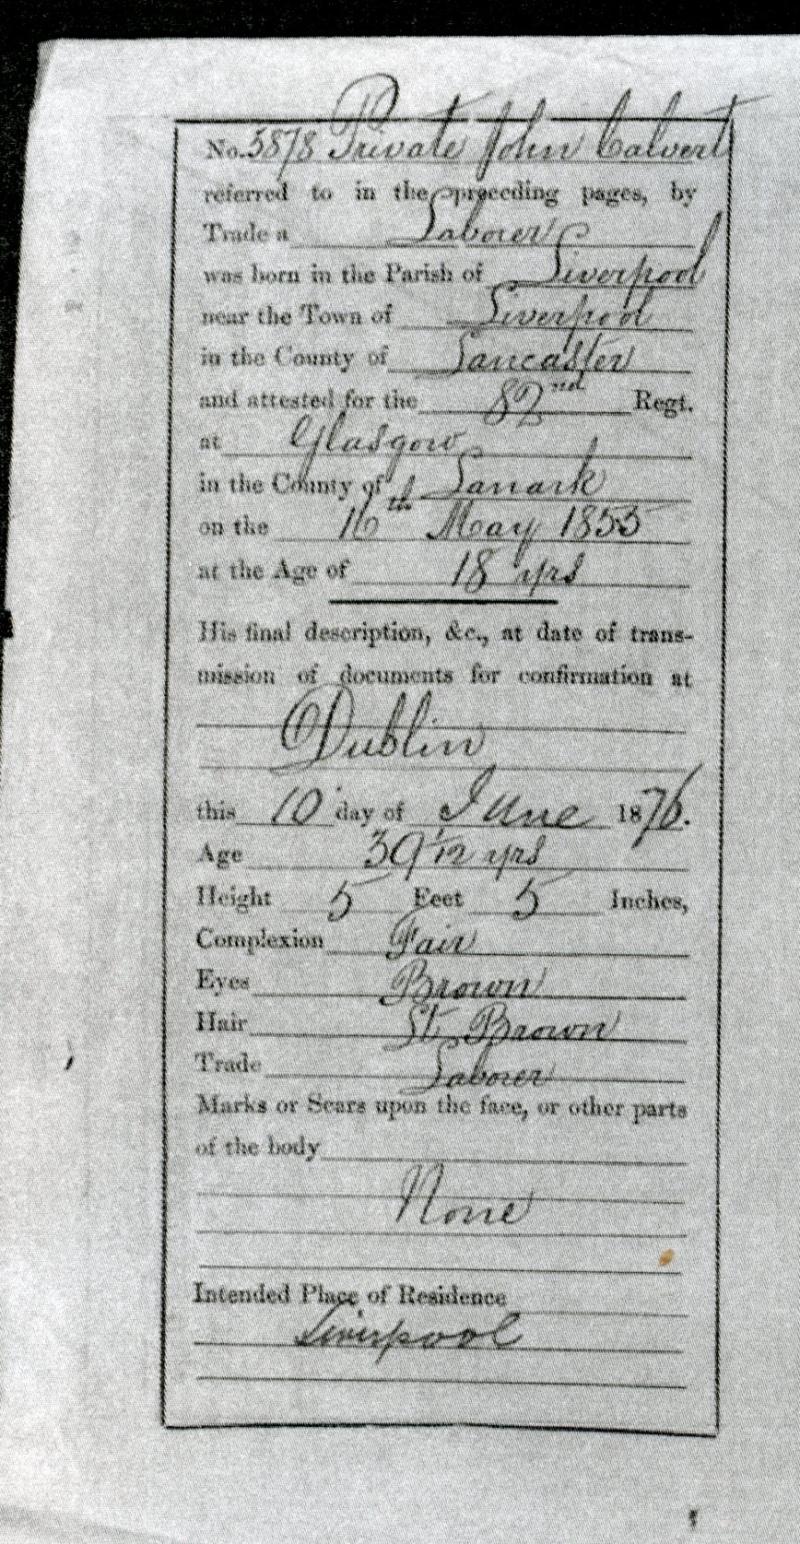 No. 3878 Private John Calvert
referred to in the preceding pages, by
Trade a Laborer
was born in the Parish of Liverpool
near the Town of Liverpool
in the County of Lancaster
and attested for the 82nd Regt.
at Glasgow
in the County of Lanark
on the 16th May 1855
at the Age of 18 yrs
His final description, &c., at date of trans-
mission of documents for confirmation at
Dublin
this 10 day of June 1876.
Age 39 1/12 yrs
Height 5 Feet 5 Inches,
Complexion Fair
Eyes Brown
Hair Lt. Brown
Trade Laborer
Marks or Scars upon the face, or other parts
of the body
None
Intended Place of Residence
Liverpool